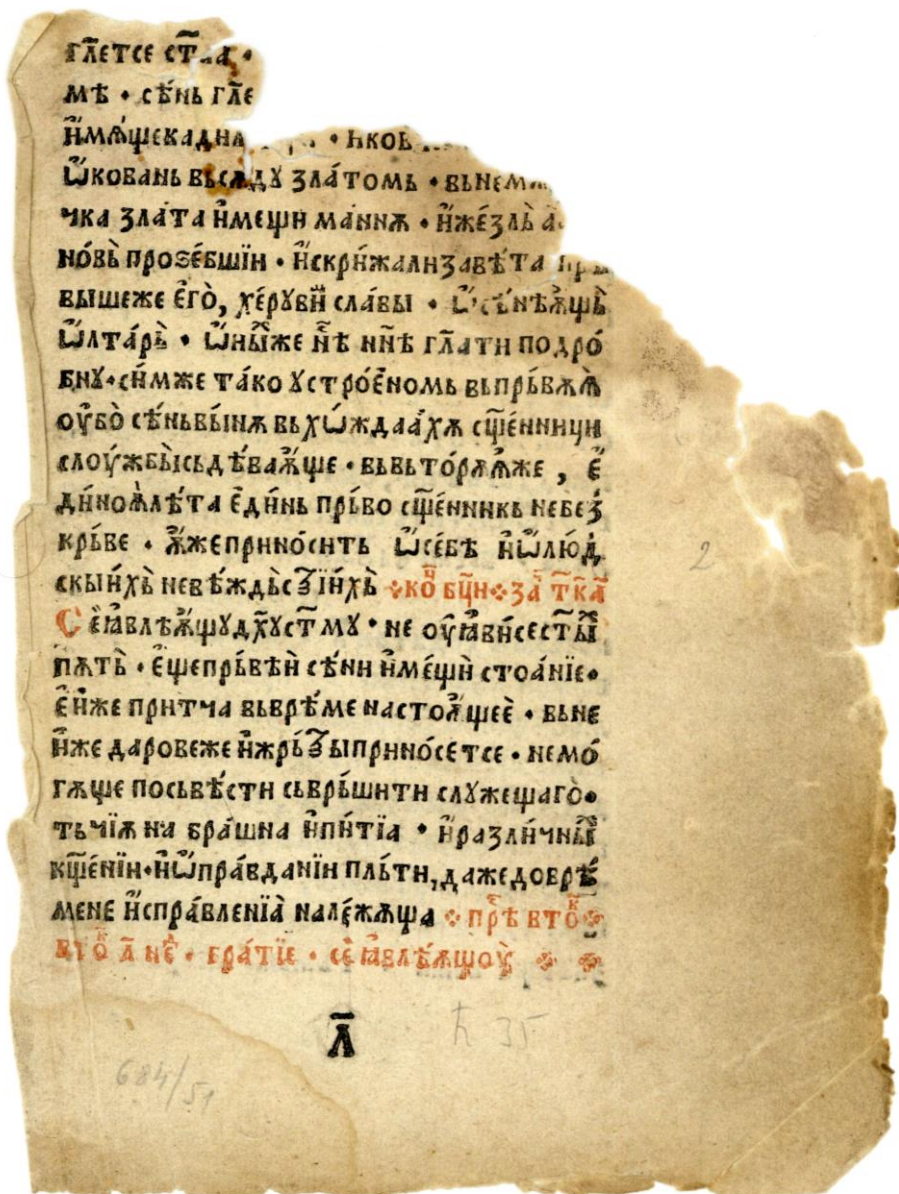 гл҃етсе ст҃аа •
мѣ • сѣ́нь гл҃е
и҆мѫ́щекадил • и҆ков
ѡ҆́кованъ вьсѫдꙋ зла́томь • вьнем
чка злата и҆меши ма́ннѫ • и҆же́зль а
но́вь прозе́бшїи • и҆скри́жализавѣ́та
вышеже е҆го̀, хе́рꙋви сла́вы • ѡ҆сѣнѣѫ́щь
ѡ҆лта́рь • ѡ҆ни́хже нѣ нн҃ѣ гл҃ати подро́
бнꙋ • си́мже та́ко ꙋстрое́номь вьпрь́вѫѫ
оу҆бо̀ сѣ́ньвы́нѫ вьхѡ́ждаа́хѫ сщ҃е́нници
слоу́жбы̀сьдѣва́ѫще • вьвьто́рѫѫже , е҆
ди́ноѫлѣ́та е҆ди́нь прь́во сщ҃е́нникь небез̾
крь́ве • ѫ҆́жеприно́сить ѡ҆се́бѣ и҆ѡ҆лю́д
скы́ихь невѣ́ждьсꙁїи́хь ко҃ бц҃и за тк҃а
Се́ ꙗ҆влѣ́ѫщꙋдх҃ꙋст҃мꙋ • не оу҆ꙗ҆ви́сест҃ы́и
пѫть • е҆щепрь́вѣи сѣ́ни и҆ме́щи стоа́нїе •
е҆́иже притча вьврѣ́ме настоѧ́щеѐ • вьне
и҆́же даровеже и҆жрь́ꙁ҆ыприно́сетсе • немо́
гѫще посьвѣ́сти сьврь́шити слꙋжещаго̀ •
тьчї́ѫ на бра́шна и҆пи́тїа • и҆разли́чны
кщ҃е́нїи • и҆ѡ҆пра́вданїи пль́ти, дажедоврѣ́
мене и҆спра́вленїа̀ нале́жѫща прѣ вто
вто л҃ не • бра́тїе • се́ ꙗ҆влѣ́ѫщоу̀
л҃
ћ 35
684/51
2